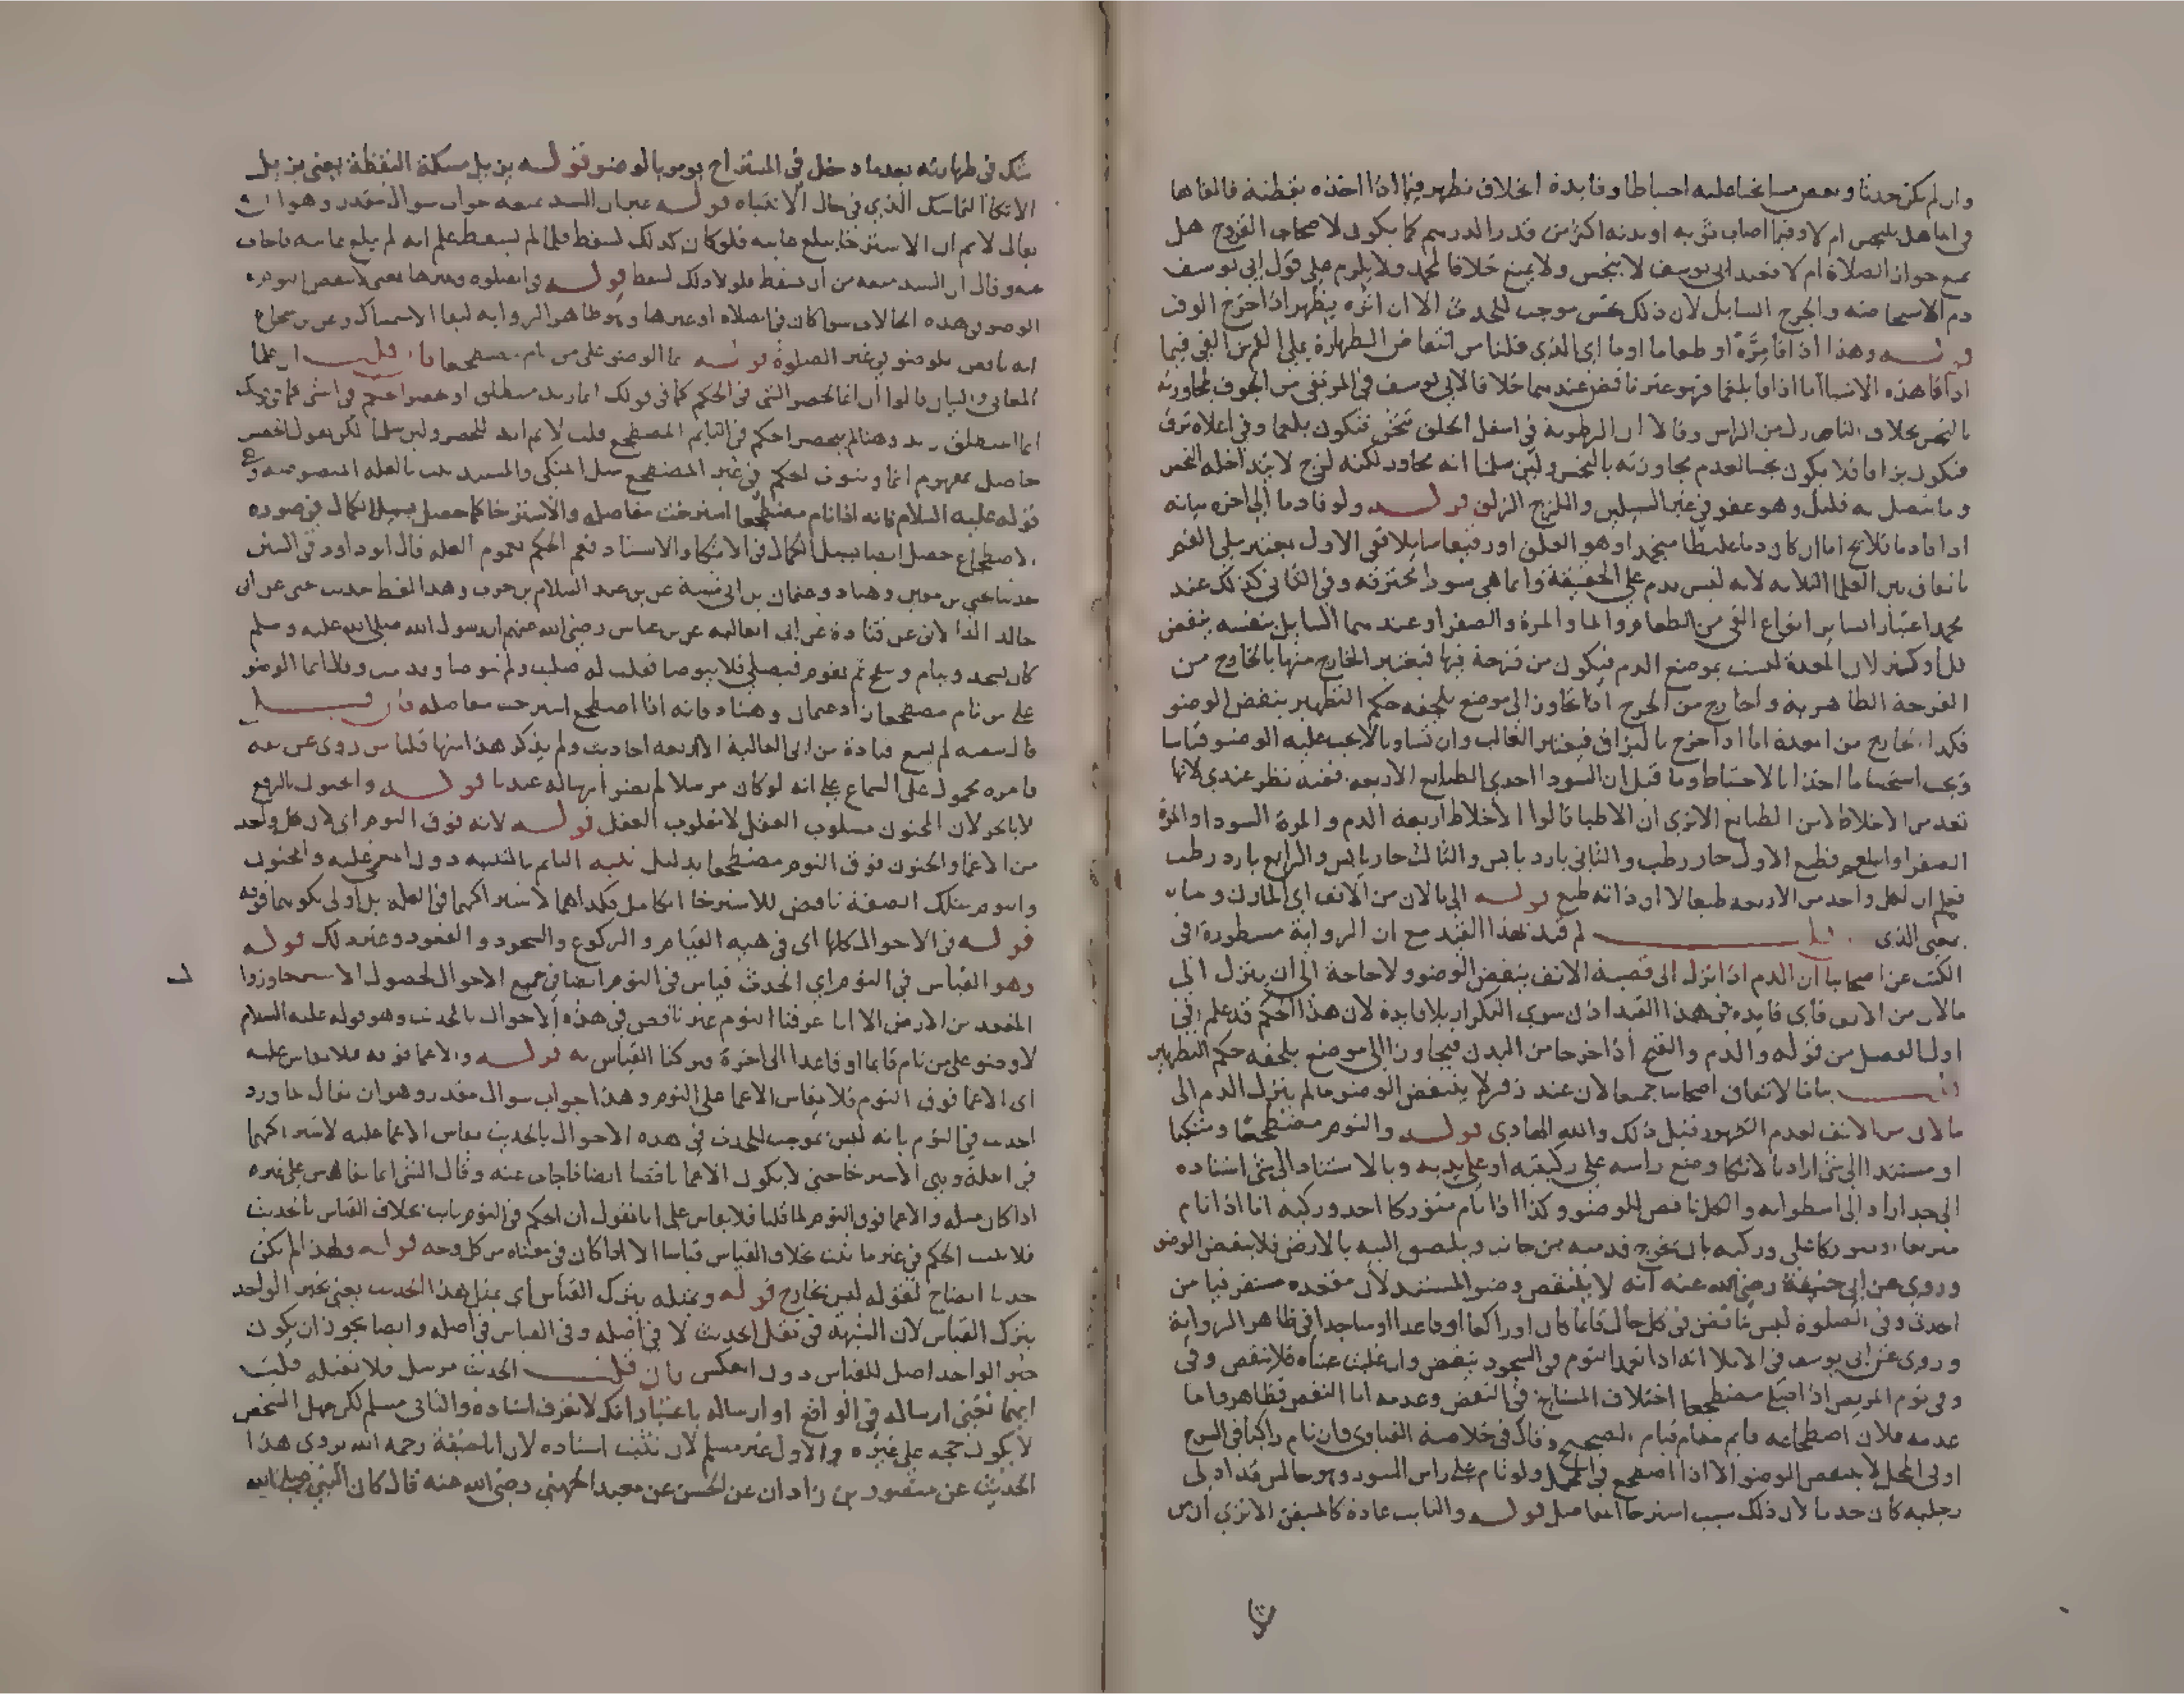 وان لم يكن حدثا وبعض مشايخنا عليه احتياطا وفايدة الخلاف تظهر فيما اذا اخذه بقطنة فالقاها
في الماء هل ينجس ام لا وفيما اصاب ثوبه او بدنه اكثر من قدر الدرهم كما يكون لاصحاب القروح هل
يمنع جواز الصلاة ام لا فعند ابي يوسف لا ينجس ولا يمنع خلافا لمحمد ولا يلزم على قول ابي يوسف
دم الاستحاضة والجرح السايل لان ذلك نجس موجب للحدث الا ان اثره يظهر اذا خرج الوقت
قوله وهذا اذا قاء مرة او طعاما او ماء اي الذي قلنا من انتقاض الطهارة بملء الفم من القيء فيما
اذا قاء هذه الاشياء اما اذا قاء بلغما فهو غير ناقض عندهما خلافا لابي يوسف في المرتقي من الجوف لمجاورته
بالنجس بخلاف النازل من الراس وقالا ان الرطوبة في اسفل الحلق تثخن فتكون بلغما وفي اعلاه ترق
فتكون بزاقا فلا يكون نجسا لعدم مجاورته بالنجس ولين سلمنا انه مجاور لكنه لزج لا يتداخله النجس
وما يتصل به قليل وهو عفو في غير السبيلين واللزج الزلق قوله ولو قاء دما الى اخره بيانه
اذا قاء دما فلا يخ اما ان كان دما غليظا منجمدا وهو العلق او رقيقا سايلا ففي الاول يعتبر ملء الفم
باتفاق بين العلماء الثلاثة لانه ليس بدم على الحقيقة وانما هي سوداء محترقة وفي الثاني كذلك عند
محمد اعتبارا بساير انواع القيء من الطعام والماء والمرة والصفراء وعندهما السايل بنفسه ينقض
قل او كثر لان المعدة ليست بموضع الدم فيكون من قرحة فيها فيعتبر الخارج منها بالخارج من
القرحة الظاهرية والخارج من الجرح اذا تجاوز الى موضع يلحقه حكم التطهير ينقض الوضو
فكذا الخارج من المعدة اما اذا خرج بالبزاق فيعتبر الغالب وان تساويا لا يجب عليه الوضو قياسا
ويجب استحسانا اخذا بالاحتياط وما قيل ان السودا احدى الطبايع الاربعة ففيه نظر عندي لانها
تعد من الاخلاط لا من الطبايع الا ترى ان الاطبا قالوا الاخلاط اربعة الدم والمرة السودا والمرة
الصفرا والبلغم فطبع الاول حار رطب والثاني بارد يابس والثالث حار يابس والرابع بارد رطب
فعلم ان لكل واحد من الاربعة طبعا لا ان ذاته طبع قوله الى ما لان من الانف اي المارن وما
بمعنى الذي فان قلت لم قيد بهذا القيد مع ان الرواية مسطورة في
الكتب عن اصحابنا ان الدم اذا نزل الى قصبة الانف ينقض الوضو ولا حاجة الى ان ينزل الى
ما لان من الانف فاي فايدة في هذا القيد اذن سوى التكرار بلا فايدة لان هذا الحكم قد علم في
اول الفصل من قوله والدم والقيح اذا خرجا من البدن فتجاوزا الى موضع يلحقه حكم التطهير
قلت بيانا لاتفاق اصحابنا جميعا لان عند زفر لا ينتقض الوضو ما لم ينزل الدم الى
ما لان من الانف لعدم الظهور قبل ذلك والله الهادي قوله والنوم مضطجعا ومتكيا
او مستندا الى شي اراد بالاتكا وضع راسه على ركبتيه او على يديه وبالاستناد الى شي استناده
الى جدار او الى اسطوانة والكل ناقض للوضو وكذا اذا نام متوركا احد وركيه اما اذا نام
متربعا او متوركا على وركيه بان يخرج قدميه من جانب ويلصق اليتيه بالارض فلا ينقض الوضو
وروي عن ابي حنيفة رضي الله عنه انه لا ينتقض وضو المستند لان مقعده مستقر فيا من
الحدث وفي الصلوة ليس بناقض في كل حال قايما كان او راكعا او قاعدا او ساجدا في ظاهر الرواية
وروي عن ابي يوسف في الاملا انه اذا تعمد النوم في السجود ينقض وان غلبت عيناه فلا ينقض وفي
وفي نوم المريض اذا صلى مضطجعا اختلاف المشايخ في النقض وعدمه اما النقض فظاهر واما
عدمه فلان اضطجاعه قايم مقام قيام الصحيح وقال في خلاصة الفتاوي وان نام راكبا في السرج
او في المحمل لا ينتقض الوضو الا اذا اضطجع في المحمل ولو نام على راس التنور وهو جالس قد ادلى
رجليه كان حدثا لان ذلك سبب استرخاء المفاصل قوله والثابت عادة كالمتيقن الا ترى ان من
شك في طهارته بعد ما دخل في المستراح يومر بالوضو قوله يزيل مسكة اليقظة يعني يزيل
الاتكا التماسك الذي في حال الانتباه قوله غير ان السند يمنعه جواب سوال مقدر وهو ان
يقال لا نم ان الاسترخا يبلغ غايته فلو كان كذلك لسقط فلما لم يسقط علم انه لم يبلغ غايته فاجاب
عنه وقال ان السند منعه من ان يسقط فلولا ذلك لسقط قوله والصلوة وغيرها يعني لا ينقض النوم
الوضو في هذه الحالات سوا كان في الصلاة او غيرها وهو ظاهر الرواية لبقا الاستمساك وعن بن شجاع
انه ناقض للوضو في غير الصلوة قوله انما الوضو على من نام مضطجعا فان قلت ان علما
المعاني والبيان قالوا ان انما لحصر الشي في الحكم كما في قولك انما زيد منطلق او لحصر الحكم في الشي كما في قولك
انما المنطلق زيد وهنا لم ينحصر الحكم في النايم المضطجع قلت لا نم انه للحصر ولين سلمنا لكن نقول الحصر
حاصل بمفهوم انما وثبوت الحكم في غير المضطجع مثل المتكي والمستند ثبت بالعلة المنصوصة في
قوله عليه السلام فانه اذا نام مضطجعا استرخت مفاصله والاسترخا كما حصل بسبيل الكمال في صورة
الاضطجاع حصل ايضا بسبيل الكمال في الاتكا والاستناد فعم الحكم لعموم العلة قال ابو داود في السنن
حدثنا يحيى بن معين وهناد وعثمان بن ابي شيبة عن بن عبد السلام بن حرب وهذا لفظ حديث يحيى عن ابي
خالد الدالاني عن قتادة عن ابي العالية عن بن عباس رضي الله عنهم ان رسول الله صلى الله عليه وسلم
كان يسجد وينام وينفخ ثم يقوم فيصلي فلا يتوضا فقلت له صليت ولم تتوضا وقد نمت وقال انما الوضو
على من نام مضطجعا زاد عثمان وهناد فانه اذا اضطجع استرخت مفاصله فان قلت
قال شعبة لم يسمع قتادة من ابي العالية الا اربعة احاديث ولم يذكر هذا منها قلنا من روى عن ثقة
فامره محمول على السماع على انه لو كان مرسلا لم يضر ارساله عندنا قوله والجنون بالرفع
لا بالجر لان المجنون مسلوب العقل لا مغلوب العقل قوله لانه فوق النوم اي لان كل واحد
من الاغما والجنون فوق النوم مضطجعا بدليل تنبه النايم بالتنبيه دون المغمى عليه والمجنون
والنوم بتلك الصفة ناقض للاسترخا الكامل فكذا هما لاشتراكهما في العلة بل اولى لكونهما فوقه
قوله في الاحوال كلها اي في هيه القيام والركوع والسجود والقعود وغير ذلك قوله
وهو القياس في النوم اي الحدث قياس في النوم ايضا في جميع الاحوال لحصول الاسترخا وزوال
المقعد من الارض الا انا عرفنا النوم غير ناقض في هذه الاحوال بالحديث وهو قوله عليه السلام
لا وضو على من نام قايما او قاعدا الى اخره وتركنا القياس به قوله والاغما فوقه فلا يقاس عليه
اي الاغما فوق النوم فلا يقاس الاغما على النوم وهذا جواب سوال مقدر وهو ان يقال لما ورد
الحديث في النوم بانه ليس بموجب للحدث في هذه الاحوال بالحديث يقاس الاغما عليه لاشتراكهما
في العلة وهي الاسترخا حتى لا يكون الاغما ناقضا ايضا فاجاب عنه وقال الشي انما يقاس على غيره
اذا كان مثله والاغما فوق النوم لما قلنا فلا يقاس على انا نقول ان الحكم في النوم ثابت بخلاف القياس بالحديث
فلا يثبت الحكم في غير ما ثبت بخلاف القياس قياسا الا اذا كان في معناه من كل وجه قوله ولهذا لم يكن
حدثا ايضاح لقوله ليس بخارج قوله وبمثله يترك القياس اي بمثل هذا الحديث يعني بخبر الواحد
يترك القياس لان الشبهة في نقل الحديث لا في اصله وفي القياس في اصله وايضا يجوز ان يكون
خبر الواحد اصل للقياس دون العكس فان قلت الحديث مرسل فلا نقبله قلت
ايهما تعني ارساله في الواقع او ارساله باعتبار انك لا تعرف اسناده والثاني مسلم لكن جهل الشخص
لا يكون حجة على غيره والاول غير مسلم لان نثبت اسناده لان ابا حنيفة رحمه الله يروي هذا
الحديث عن منصور بن زاذان عن الحسن عن معبد الجهني رضي الله عنه قال كان النبي صلى الله